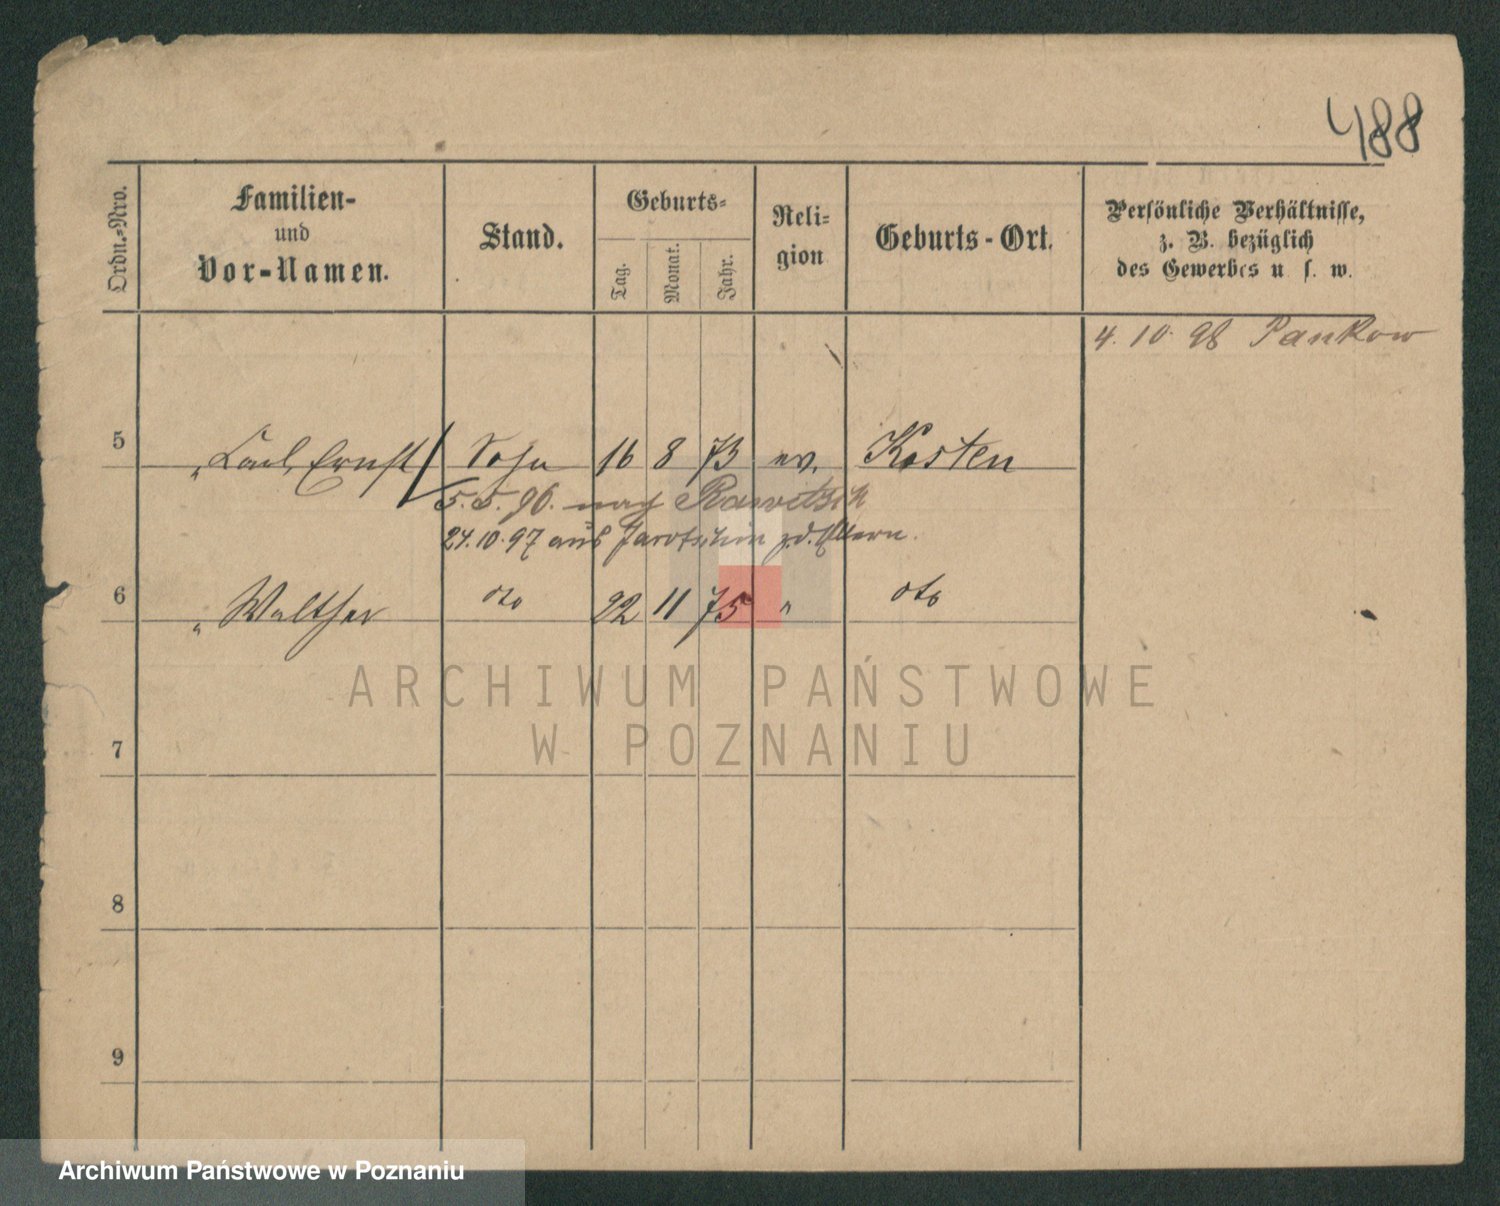 488
Ordn.-Nro.
Familien-
und
Vor-Namen.
Stand.
Geburts-
Tag.
Monat.
Jahr.
Reli-
gion
Geburts-Ort.
Persönliche Verhältnisse,
z. B. bezüglich
des Gewerbes u. s. w.
4. 10. 98 Pankow
5 " Carl, Ernst Sohn 16 8 73 ev. Kosten
5.5.96. nach Rawitsch
24.10.97 aus Jarotschin z.d. Eltern.
6 " Walther dto 22 11 75 " dto
ARCHIWUM PAŃSTWOWE
W POZNANIU
7
8
9
Archiwum Państwowe w Poznaniu